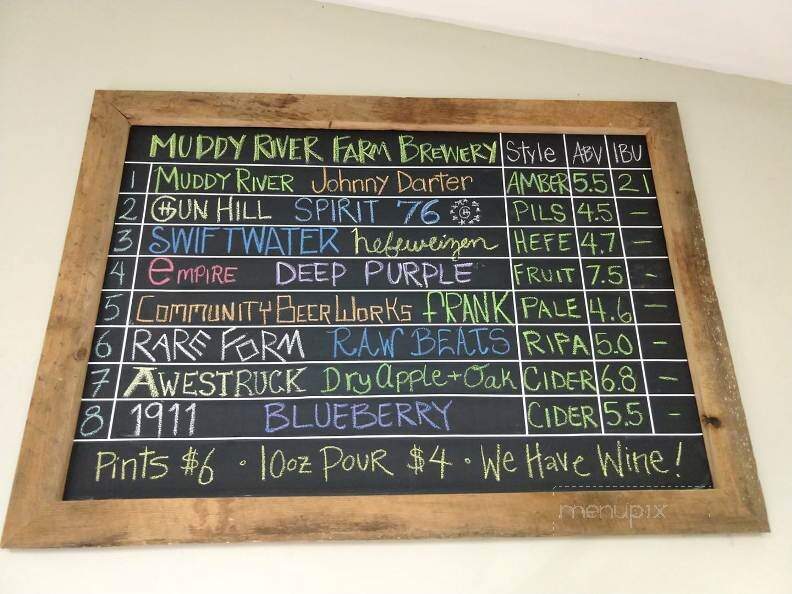 MUDDY RIVER FARM BREWERY Style ABV IBU
1 MUDDY RIVER Johnny Darter AMBER 5.5 21
2 GUN HILL SPIRIT 76 PILS 4.5 -
3 SWIFTWATER hefeweizen HEFE 4.7 -
4 EMPIRE DEEP PURPLE FRUIT 7.5 -
5 COMMUNITY BEER WORKS FRANK PALE 4.6 -
6 RARE FORM RAW BEATS RIPA 5.0 -
7 AWESTRUCK Dry Apple + Oak CIDER 6.8 -
8 1911 BLUEBERRY CIDER 5.5 -
Pints $6 • 10oz Pour $4 • We Have Wine!
menupix